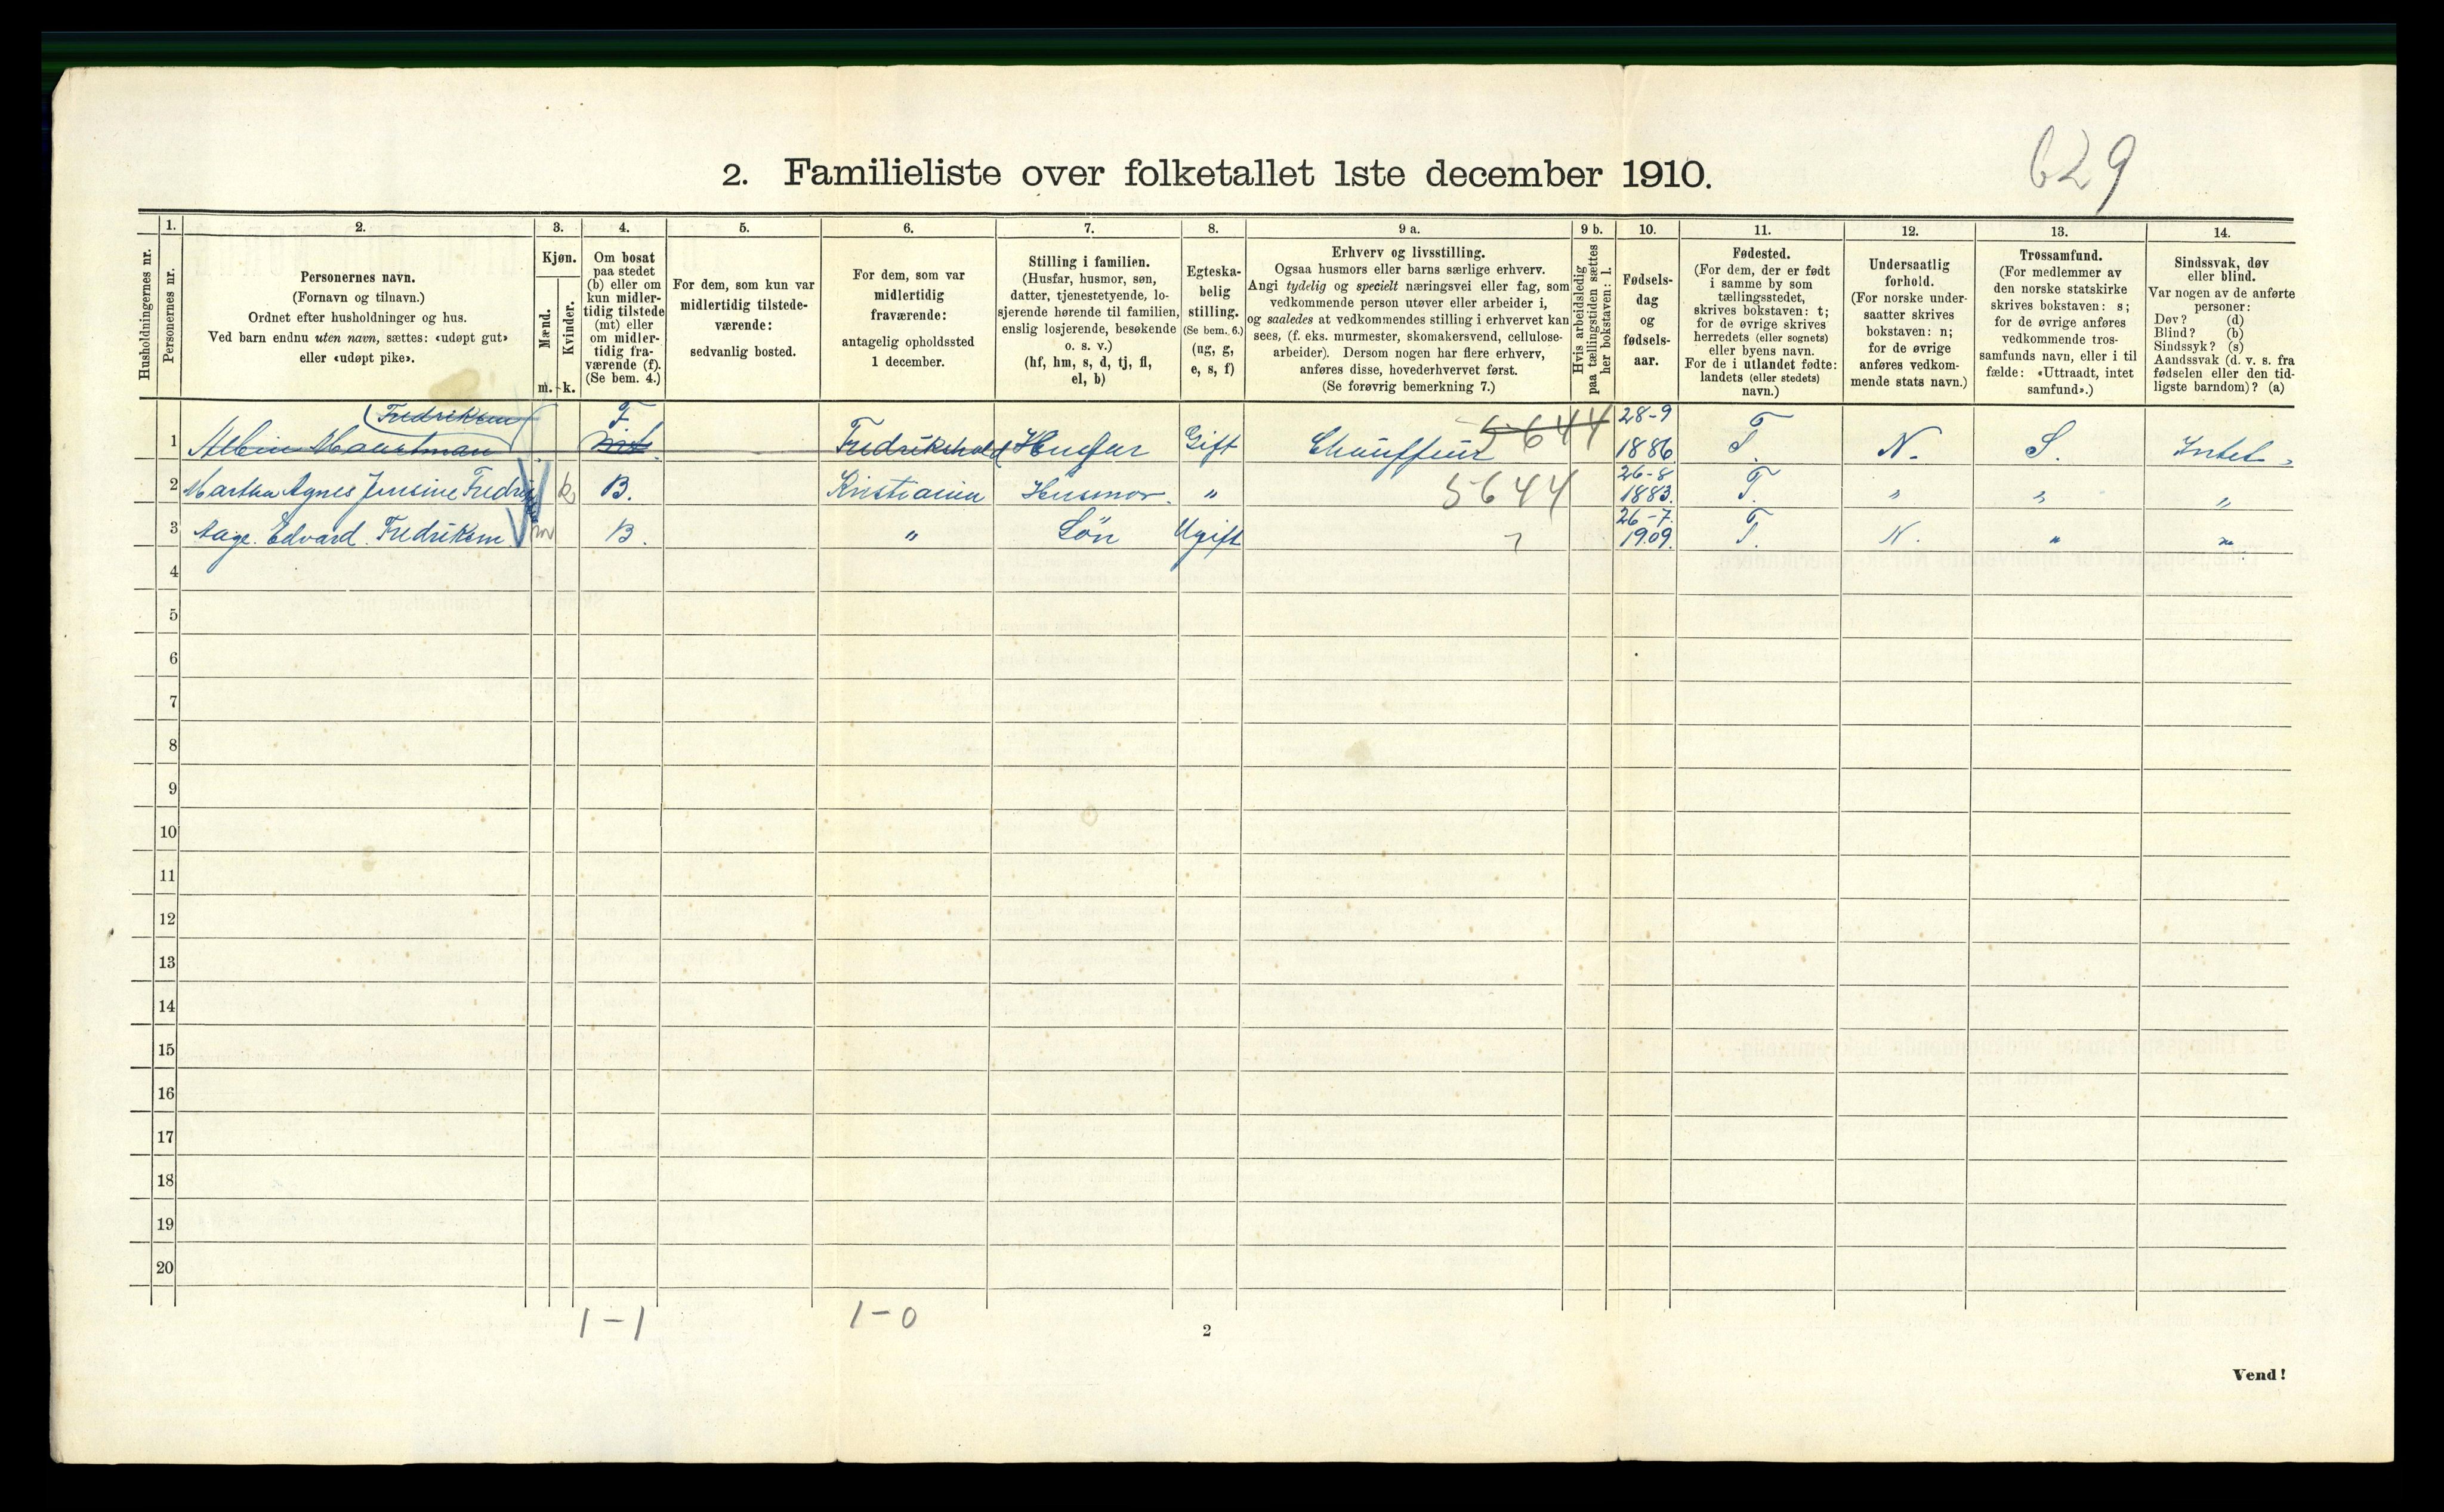 629
2. Familieliste over folketallet 1ste december 1910.
1. 2. 3. 4. 5. 6. 7. 8. 9 a. 9 b. 10. 11. 12. 13. 14.
Husholdningernes nr.
Personernes nr.
Personernes navn.
(Fornavn og tilnavn.)
Ordnet efter husholdninger og hus.
Ved barn endnu uten navn, sættes: «udøpt gut»
eller «udøpt pike».
Kjøn.
Mænd.
Kvinder.
m. k.
Om bosat
paa stedet
(b) eller om
kun midler-
tidig tilstede
(mt) eller
om midler-
tidig fra-
værende (f).
(Se bem. 4.)
For dem, som kun var
midlertidig tilstede-
værende:
sedvanlig bosted.
For dem, som var
midlertidig
fraværende:
antagelig opholdssted
1 december.
Stilling i familien.
(Husfar, husmor, søn,
datter, tjenestetyende, lo-
sjerende hørende til familien,
enslig losjerende, besøkende
o. s. v.)
(hf, hm, s, d, tj, fl,
el, b)
Egteska-
belig
stilling.
(Se bem. 6.)
(ug, g,
e, s, f)
Erhverv og livsstilling.
Ogsaa husmors eller barns særlige erhverv.
Angi tydelig og specielt næringsvei eller fag, som
vedkommende person utøver eller arbeider i,
og saaledes at vedkommendes stilling i erhvervet kan
sees, (f. eks. murmester, skomakersvend, cellulose-
arbeider). Dersom nogen har flere erhverv,
anføres disse, hovederhvervet først.
(Se forøvrig bemerkning 7.)
Hvis arbeidsledig
paa tællingstiden sættes
her bokstaven: l.
Fødsels-
dag
og
fødsels-
aar.
Fødested.
(For dem, der er født
i samme by som
tællingsstedet,
skrives bokstaven: t;
for de øvrige skrives
herredets (eller sognets)
eller byens navn.
For de i utlandet fødte:
landets (eller stedets)
navn.)
Undersaatlig
forhold.
(For norske under-
saatter skrives
bokstaven: n;
for de øvrige
anføres vedkom-
mende stats navn.)
Trossamfund.
(For medlemmer av
den norske statskirke
skrives bokstaven: s;
for de øvrige anføres
vedkommende tros-
samfunds navn, eller i til
fælde: «Uttraadt, intet
samfund».)
Sindssvak, døv
eller blind.
Var nogen av de anførte
personer:
Døv? (d)
Blind? (b)
Sindssyk? (s)
Aandssvak (d. v. s. fra
fødselen eller den tid-
ligste barndom)? (a)
Fredriksen F. 5644 28-9
1 mt Fredrikshald Husfar Gift Chauffeur 1886 T. N. S. Intet
2 Martha Agnes Jensine k B. Kristiania Husmor. " 5644 26-8 1883. T. " " "
3 Aage. Edvard. Fredriksen m B. " Søn Ugift 26-7. 1909. T. N. " "
4
5
6
7
8
9
10
11
12
13
14
15
16
17
18
19
20
1-1 1-0
2
Vend!